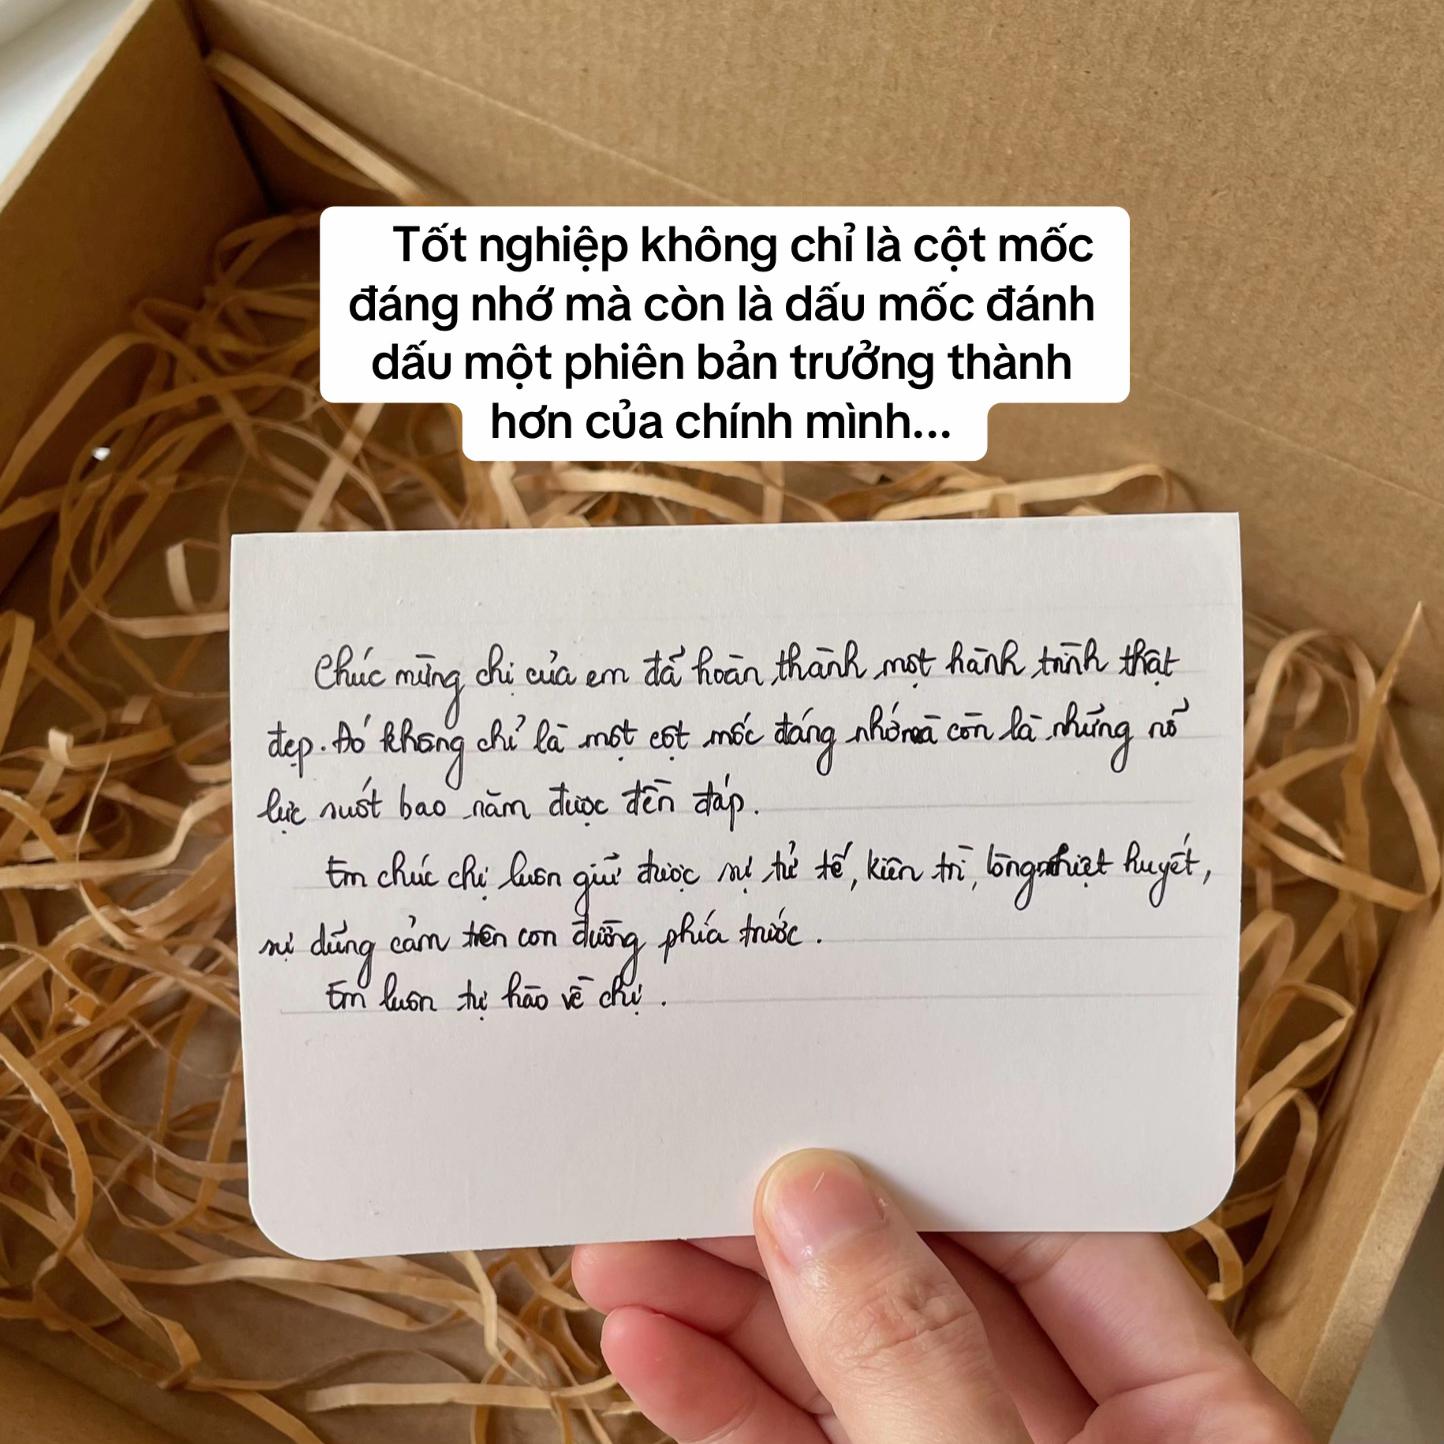 Tốt nghiệp không chỉ là cột mốc
đáng nhớ mà còn là dấu mốc đánh
dấu một phiên bản trưởng thành
hơn của chính mình...
Chúc mừng chị của em đã hoàn thành một hành trình thật
đẹp. Đó không chỉ là một cột mốc đáng nhớ mà còn là những nỗ
lực suốt bao năm được đền đáp.
Em chúc chị luôn giữ được sự tử tế, kiên trì, lòng nhiệt huyết,
sự dũng cảm trên con đường phía trước.
Em luôn tự hào về chị.